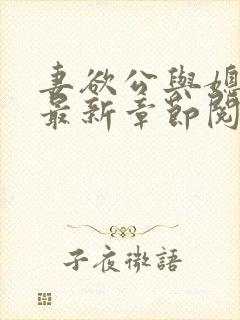 妻欲公與媳
最新章節閱
子夜微語